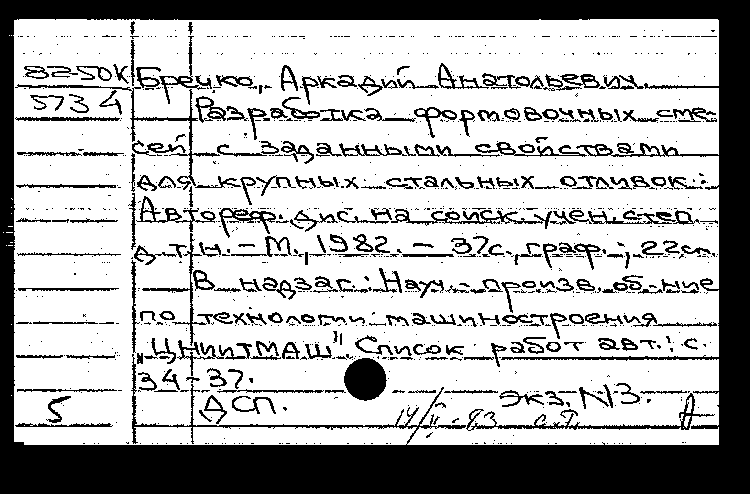 82-50К Бречко, Аркадий Анатольевич.
573 4 Разработка формовочных сме-
сей с заданными свойствами
для крупных стальных отливок:
Автореф. дис. на соиск. учен. степ.
д.т.н. - М., 1982. - 37с., граф.; 22см.
В надзаг.: Науч.-произв. об-ние
по технологии машиностроения
"ЦНИИТМАШ". Список работ авт.: с.
34-37.
5 ДСП. экз. N3.
14/II-83